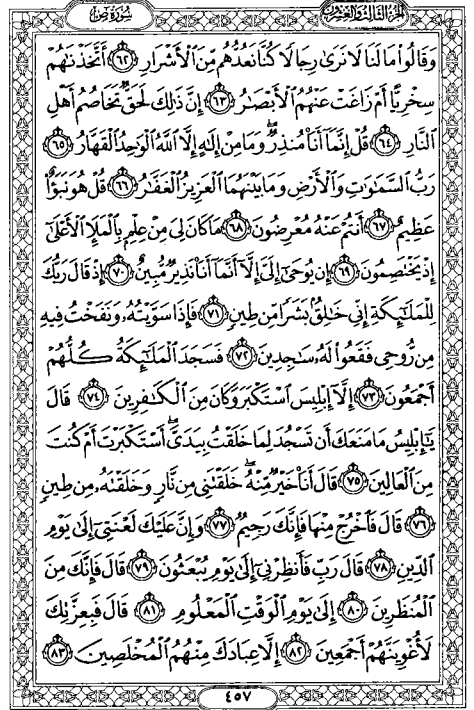 سُورَةُ صٓ الجزء الثالث والعشرون
وَقَالُوا۟ مَا لَنَا لَا نَرَىٰ رِجَالًا كُنَّا نَعُدُّهُم مِّنَ ٱلْأَشْرَارِ ٦٢ أَتَّخَذْنَٰهُمْ
سِخْرِيًّا أَمْ زَاغَتْ عَنْهُمُ ٱلْأَبْصَٰرُ ٦٣ إِنَّ ذَٰلِكَ لَحَقٌّ تَخَاصُمُ أَهْلِ
ٱلنَّارِ ٦٤ قُلْ إِنَّمَآ أَنَا۠ مُنذِرٌ ۖ وَمَا مِنْ إِلَٰهٍ إِلَّا ٱللَّهُ ٱلْوَٰحِدُ ٱلْقَهَّارُ ٦٥
رَبُّ ٱلسَّمَٰوَٰتِ وَٱلْأَرْضِ وَمَا بَيْنَهُمَا ٱلْعَزِيزُ ٱلْغَفَّٰرُ ٦٦ قُلْ هُوَ نَبَؤٌا۟
عَظِيمٌ ٦٧ أَنتُمْ عَنْهُ مُعْرِضُونَ ٦٨ مَا كَانَ لِىَ مِنْ عِلْمٍۭ بِٱلْمَلَإِ ٱلْأَعْلَىٰٓ
إِذْ يَخْتَصِمُونَ ٦٩ إِن يُوحَىٰٓ إِلَىَّ إِلَّآ أَنَّمَآ أَنَا۠ نَذِيرٌ مُّبِينٌ ٧٠ إِذْ قَالَ رَبُّكَ
لِلْمَلَٰٓئِكَةِ إِنِّى خَٰلِقٌۢ بَشَرًا مِّن طِينٍ ٧١ فَإِذَا سَوَّيْتُهُۥ وَنَفَخْتُ فِيهِ
مِن رُّوحِى فَقَعُوا۟ لَهُۥ سَٰجِدِينَ ٧٢ فَسَجَدَ ٱلْمَلَٰٓئِكَةُ كُلُّهُمْ
أَجْمَعُونَ ٧٣ إِلَّآ إِبْلِيسَ ٱسْتَكْبَرَ وَكَانَ مِنَ ٱلْكَٰفِرِينَ ٧٤ قَالَ
يَٰٓإِبْلِيسُ مَا مَنَعَكَ أَن تَسْجُدَ لِمَا خَلَقْتُ بِيَدَىَّ ۖ أَسْتَكْبَرْتَ أَمْ كُنتَ
مِنَ ٱلْعَالِينَ ٧٥ قَالَ أَنَا۠ خَيْرٌ مِّنْهُ ۖ خَلَقْتَنِى مِن نَّارٍ وَخَلَقْتَهُۥ مِن طِينٍ
٧٦ قَالَ فَٱخْرُجْ مِنْهَا فَإِنَّكَ رَجِيمٌ ٧٧ وَإِنَّ عَلَيْكَ لَعْنَتِىٓ إِلَىٰ يَوْمِ
ٱلدِّينِ ٧٨ قَالَ رَبِّ فَأَنظِرْنِىٓ إِلَىٰ يَوْمِ يُبْعَثُونَ ٧٩ قَالَ فَإِنَّكَ مِنَ
ٱلْمُنظَرِينَ ٨٠ إِلَىٰ يَوْمِ ٱلْوَقْتِ ٱلْمَعْلُومِ ٨١ قَالَ فَبِعِزَّتِكَ
لَأُغْوِيَنَّهُمْ أَجْمَعِينَ ٨٢ إِلَّا عِبَادَكَ مِنْهُمُ ٱلْمُخْلَصِينَ ٨٣
٤٥٧